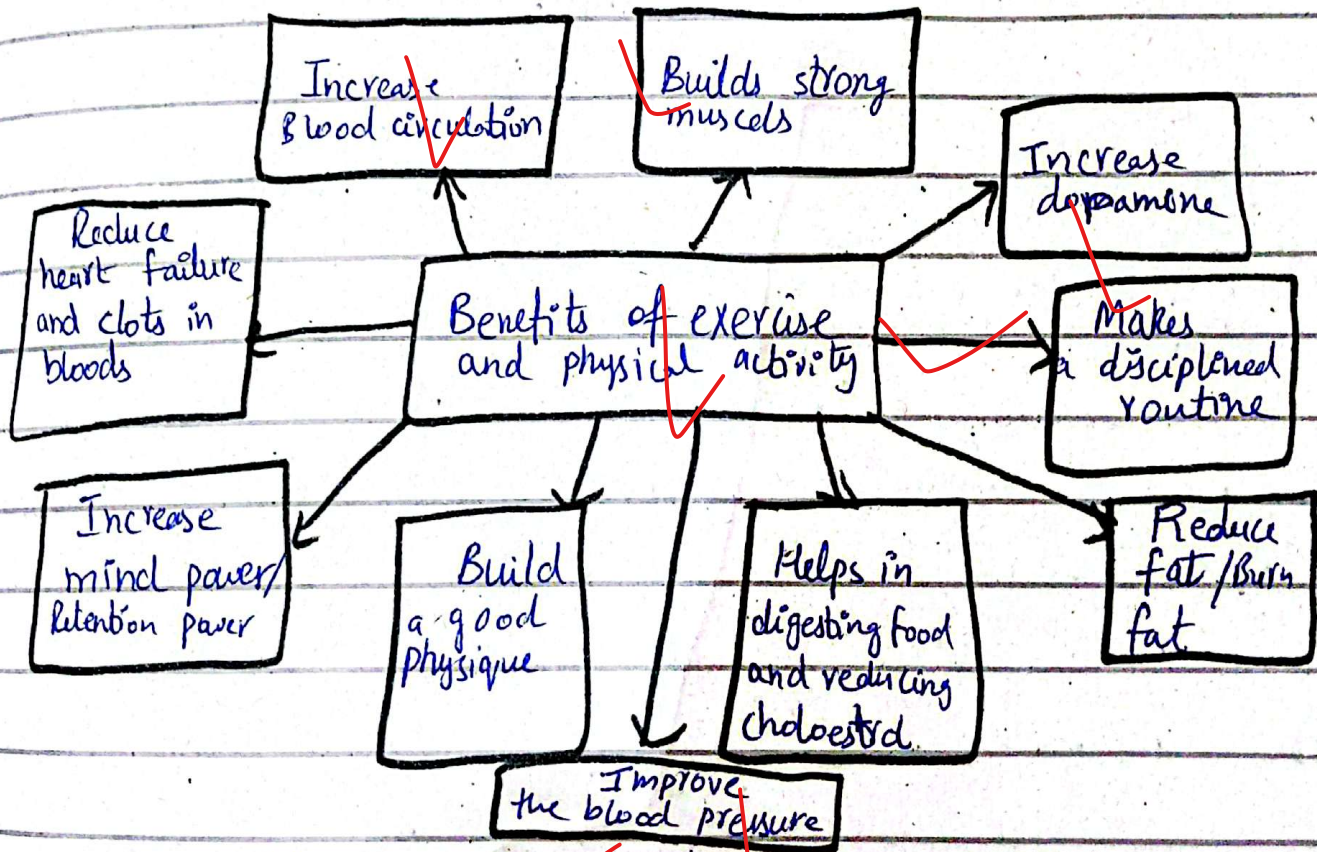 Increase
Blood circulation
Builds strong
muscels
Increase
dopamine
Reduce
heart failure
and clots in
bloods
Benefits of exercise
and physical activity
Makes
a disciplined
routine
Increase
mind power/
Retention power
Build
a good
physique
Helps in
digesting food
and reducing
choloestrol
Reduce
fat/Burn
fat
Improve
the blood pressure